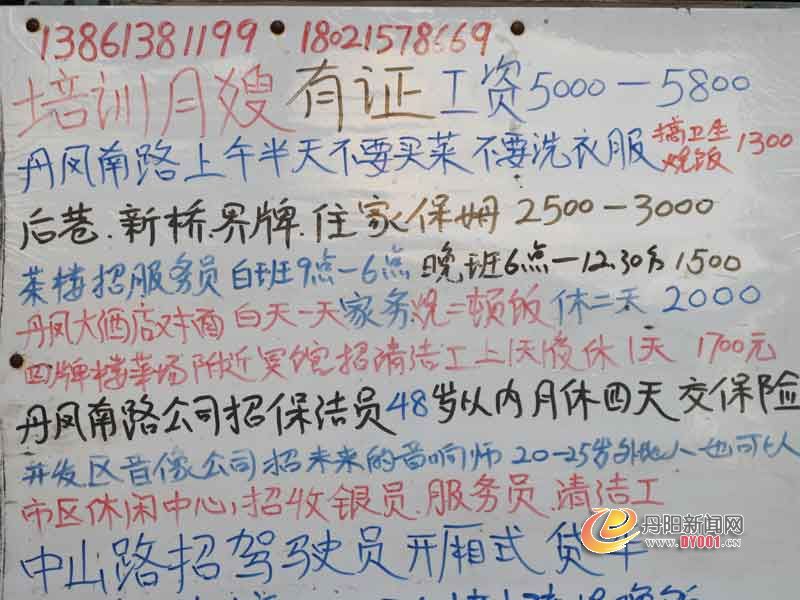 13861381199 18021578669
培训月嫂 有证 工资5000-5800
丹凤南路上午半天不要买菜 不要洗衣服 搞卫生 烧饭 1300
后巷.新桥.界牌.住家保姆 2500-3000
茶楼招服务员 白班9点-6点 晚班6点-12.30分 1500
丹凤大酒店对面 白天一天家务烧二顿饭 休二天 2000
四牌楼菜场附近宾馆招清洁工上1天夜休1天 1700元
丹凤南路公司招保洁员48岁以内月休四天 交保险
开发区音像公司招未来的音响师 20-25岁外地人也可以
市区休闲中心,招收银员.服务员.清洁工
中山路招驾驶员 开厢式货车
丹阳新闻网
WWW.DY001.CN